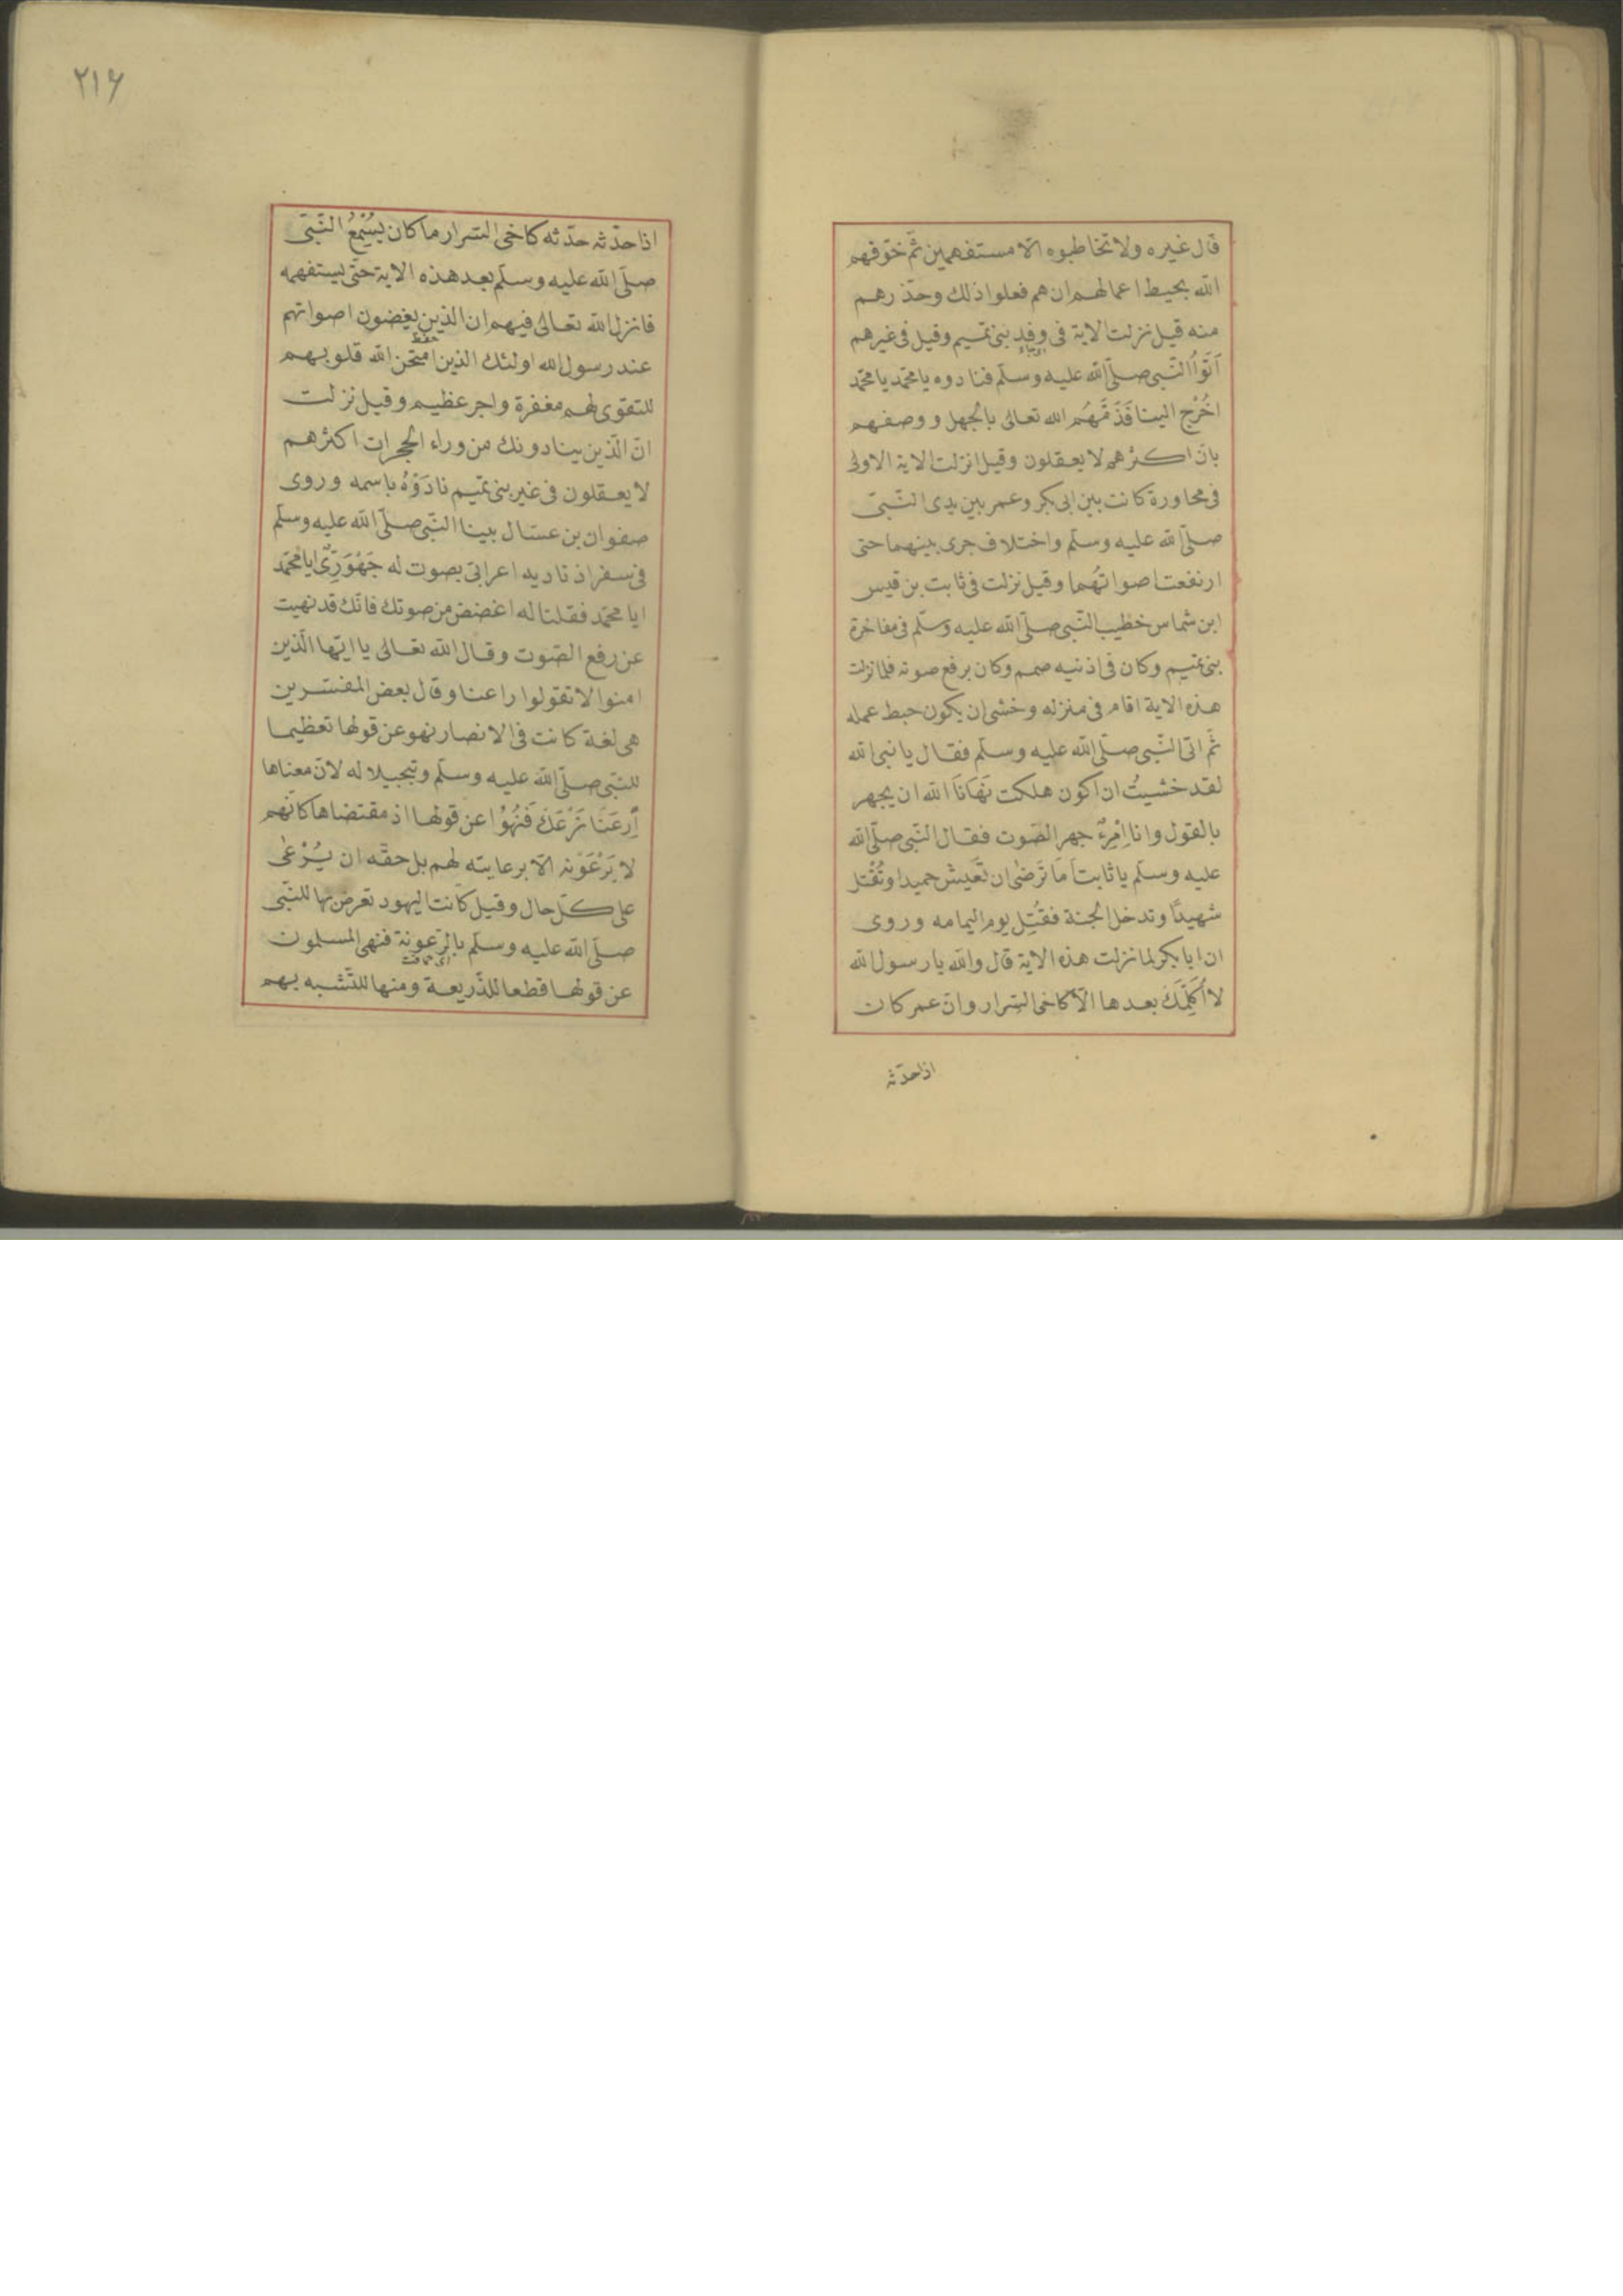 قال غيره ولا تخاطبوه الّا مستفهمين ثمّ خوّفهم
الله بحبط اعمالهم ان هم فعلوا ذلك وحذّرهم
منه قيل نزلت الاية فى وفد بنى تميم وقيل فى غيرهم
اَتَوُا النّبى صلّى الله عليه وسلّم فنادوه يا محمّد يا محمّد
اخُرُج الينا فَذَمَّهُم الله تعالى بالجهل ووصفهم
بانّ اكثرهم لا يعقلون وقيل نزلت الاية الاولى
فى محاورة كانت بين ابى بكر وعمر بين يدى النّبىّ
صلّى الله عليه وسلّم واختلاف جرى بينهما حتى
ارتفعت اصواتُهُما وقيل نزلت فى ثابت بن قيس
ابن شماس خطيب النّبى صلّى الله عليه وسلّم فى مفاخرة
بنى تميم وكان فى اذنيه صمم وكان يرفع صوته فلما نزلت
هذه الاية اقام فى منزله وخشى ان يكون حبط عمله
ثمّ اتى النّبى صلّى الله عليه وسلّم فقال يا نبى الله
لقد خشيتُ ان اكون هلكت نَهَانَا الله ان يجهر
بالقول وانا اِمْرِءٌ جهر الصّوت فقال النّبى صلّى الله
عليه وسلّم يا ثابت اَمَا تَرضٰى ان تَعيش حميدا وتُقْتل
شهيدًا وتدخل الجنة فقُتِل يوم اليمامه وروى
ان ابا بكر لما نزلت هذه الاية قال والله يا رسول الله
لا اُكَلِّمَكَ بعدها الّا كاخى السّرار وانّ عمر كان
اذا حدّثه
٢١۶
اذا حدّثه حدّثه كاخى السّرار ما كان يُسْمِعُ النّبىّ
صلّى الله عليه وسلّم بعد هذه الاية حتّى يستفهمه
فانزل الله تعالى فيهم ان الذين يغضون اصواتهم
عند رسول الله اولئك الذين امتحن الله قلوبهم
للتقوى لهم مغفرة واجر عظيم وقيل نزلت
انّ الّذين ينادونك من وراء الحجرات اكثرهم
لا يعقلون فى غير بنى تميم نادَوْهُ باسمه وروى
صفوان بن عسّال بينا النّبى صلّى الله عليه وسلّم
فى سفر اذ ناديه اعرابىّ بصوت له جَهْوَرِىّ ايا محمّد
ايا محمّد فقلنا له اغضض من صوتك فانّك قد نهيت
عن رفع الصّوت وقال الله تعالى يا ايّها الّذين
امنوا لا تقولوا راعنا وقال بعض المفسّرين
هى لغة كانت فى الانصار نهو عن قولها تعظيما
للنّبى صلّى الله عليه وسلّم وتبجيلا له لانّ معناها
اِرعَنَا نَرْعَكَ فَنُهُوْا عن قولها اذ مقتضاها كانّهم
لا يَرْعَوْنه الّا برعايته لهم بل حقّه ان يُرْعٰى
على كلّ حال وقيل كانت اليهود تعرض بها للنّبى
صلّى الله عليه وسلّم بالرّعونة فنهى المسلمون
عن قولها قطعا للذّريعة ومنها للتّشبه بهم